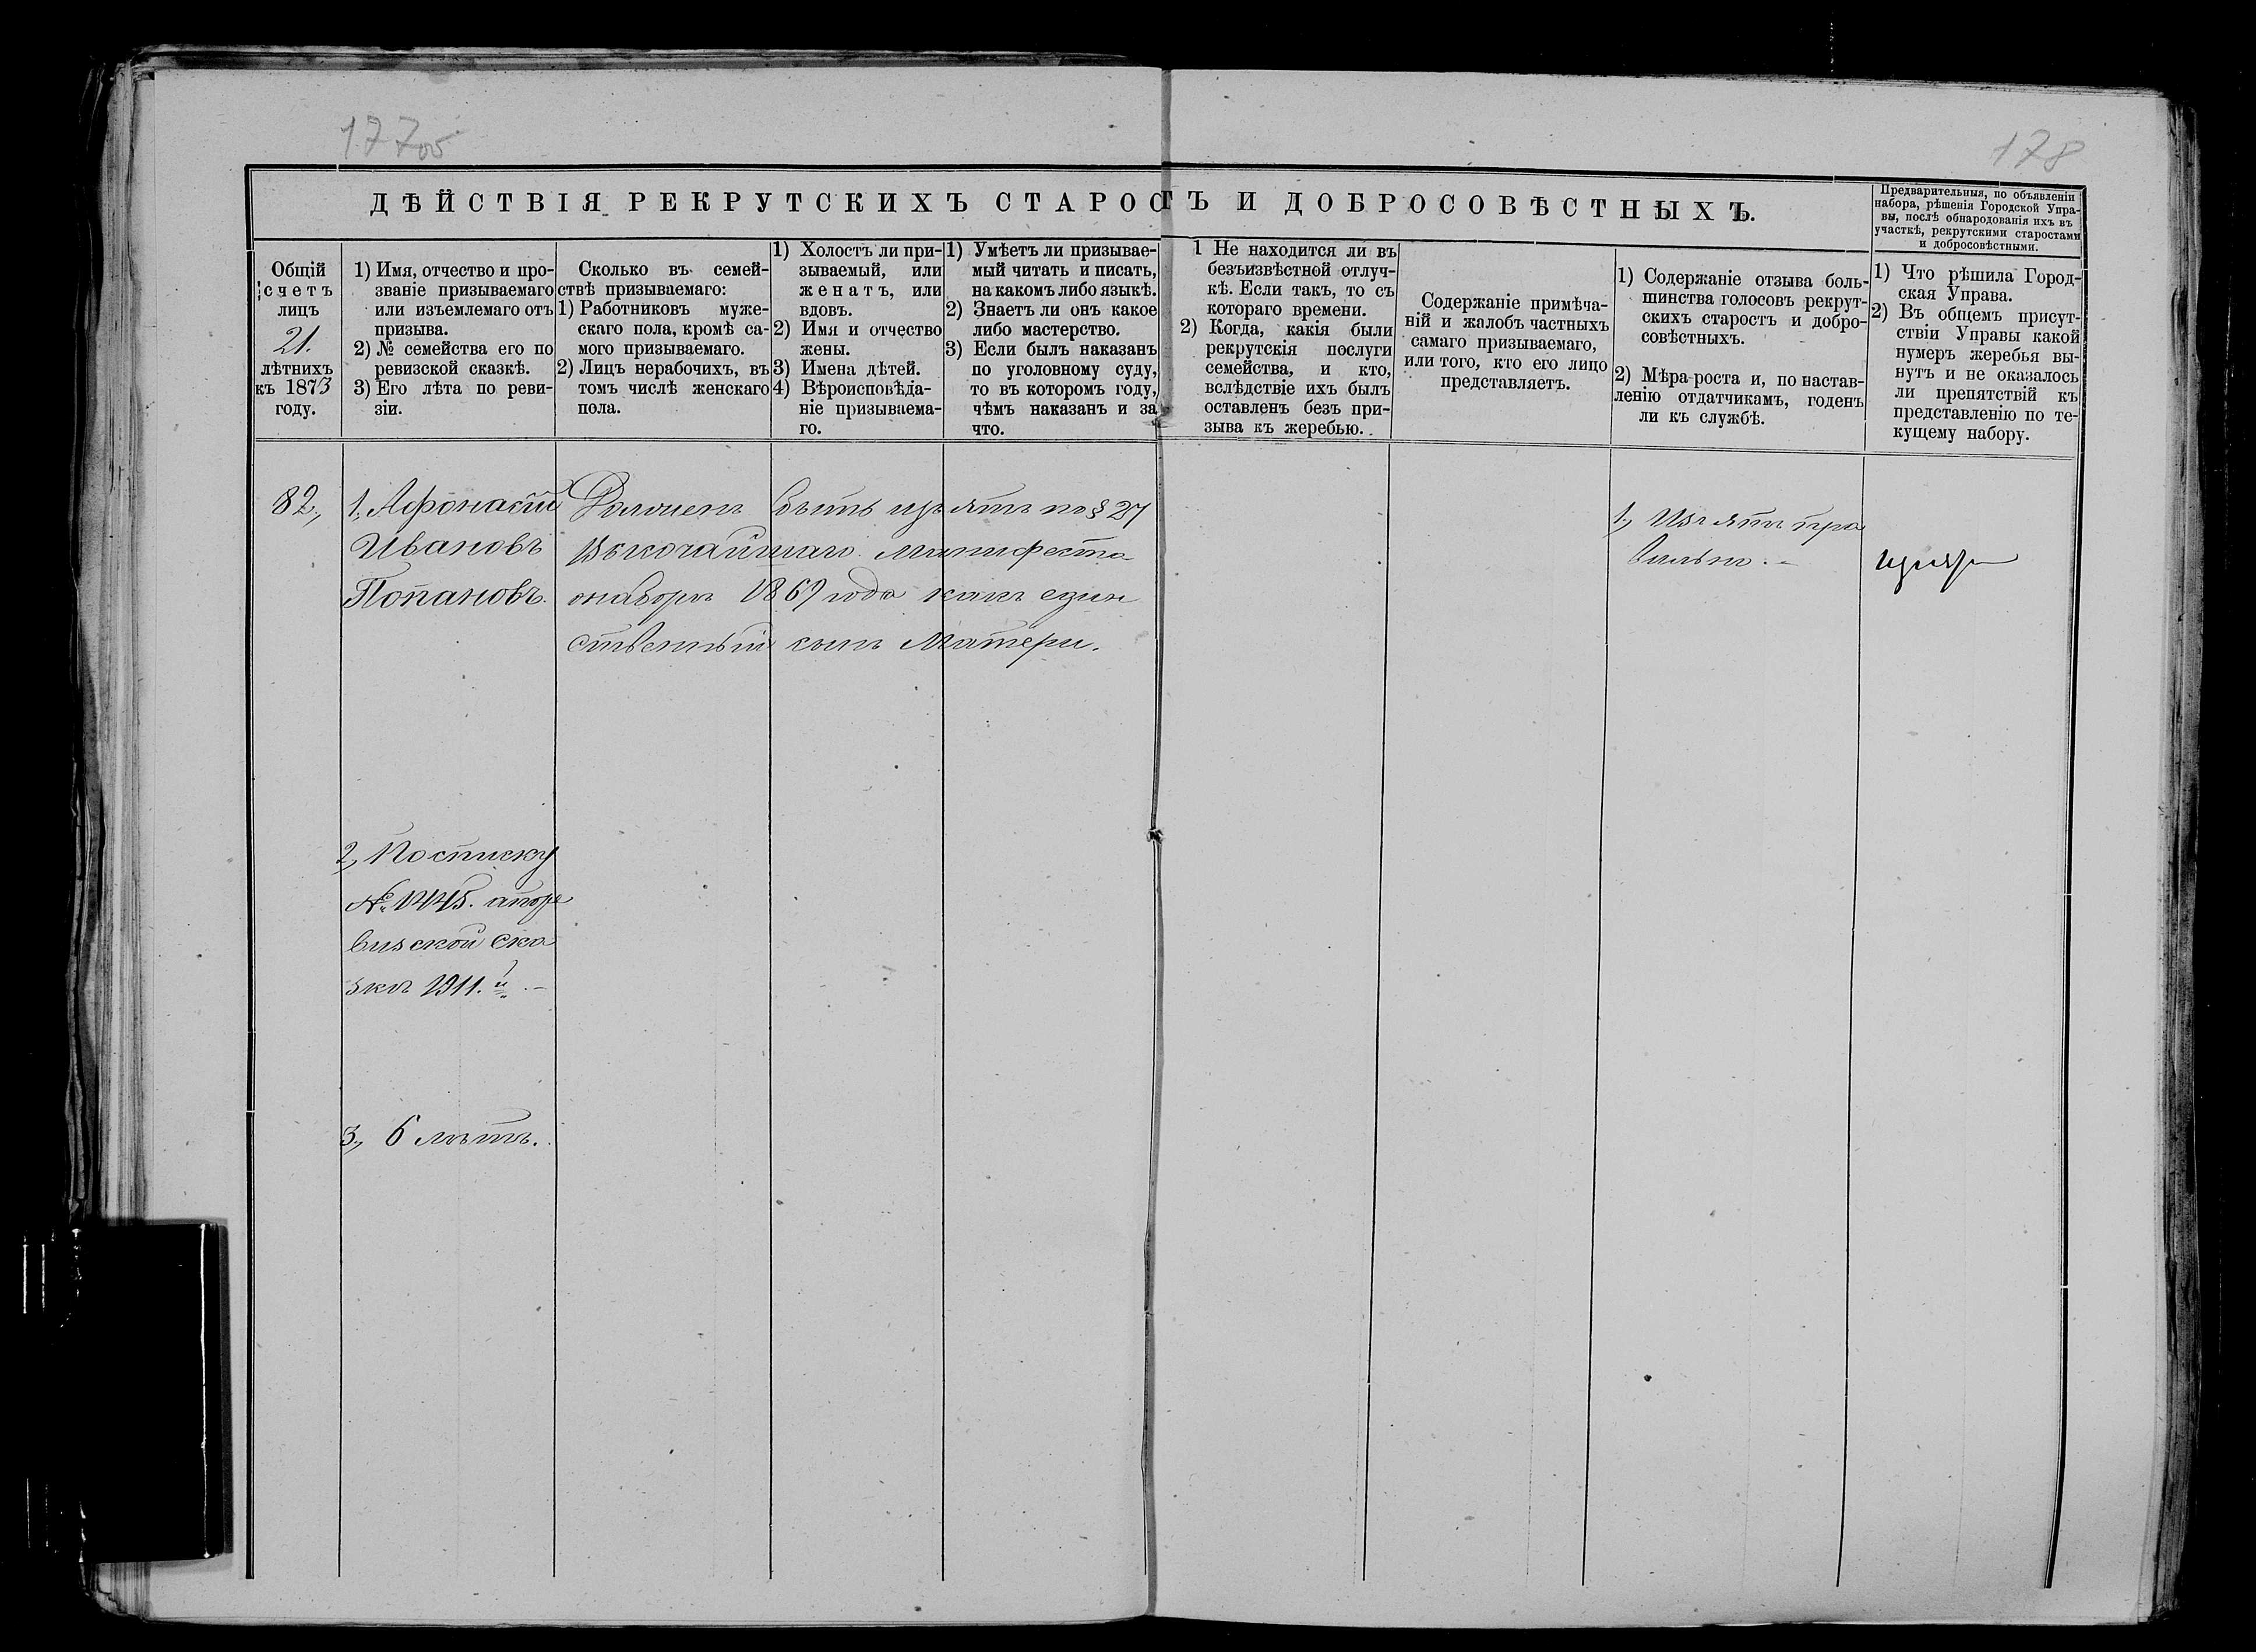 177 об
178
ДѢЙСТВІЯ РЕКРУТСКИХЪ СТАРОСТЪ И ДОБРОСОВѢСТНЫХЪ.
Предварительныя, по объявленіи
набора, рѣшенія Городской Упра-
вы, послѣ обнародованія ихъ въ
участкѣ, рекрутскими старостами
и добросовѣстными.
Общій
счетъ
лицъ
21.
лѣтнихъ
къ 1873
году.
1) Имя, отчество и про-
званіе призываемаго
или изъемлемаго отъ
призыва.
2) № семейства его по
ревизской сказкѣ.
3) Его лѣта по реви-
зіи.
Сколько въ семей-
ствѣ призываемаго:
1) Работниковъ муже-
скаго пола, кромѣ са-
мого призываемаго.
2) Лицъ нерабочихъ, въ
томъ числѣ женскаго
пола.
1) Холостъ ли при-
зываемый, или
женатъ, или
вдовъ.
2) Имя и отчество
жены.
3) Имена дѣтей.
4) Вѣроисповѣда-
ніе призываема-
го.
1) Умѣетъ ли призывае-
мый читать и писать,
на какомъ либо языкѣ.
2) Знаетъ ли онъ какое
либо мастерство.
3) Если былъ наказанъ
по уголовному суду,
то въ которомъ году,
чѣмъ наказанъ и за
что.
1 Не находится ли въ
безъизвѣстной отлуч-
кѣ. Если такъ, то съ
котораго времени.
2) Когда, какія были
рекрутскія послуги
семейства, и кто,
вслѣдствіе ихъ былъ
оставленъ безъ при-
зыва къ жеребью.
Содержаніе примѣча-
ній и жалобъ частныхъ
самаго призываемаго,
или того, кто его лицо
представляетъ.
1) Содержаніе отзыва боль-
шинства голосовъ рекрут-
скихъ старостъ и добро-
совѣстныхъ.
2) Мѣра роста и, по настав-
ленію отдатчикамъ, годенъ
ли къ службѣ.
1) Что рѣшила Город-
ская Управа.
2) Въ общемъ присут-
ствіи Управы какой
нумеръ жеребья вы-
нутъ и не оказалось
ли препятствій къ
представленію по те-
кущему набору.
82,
1, Афонасій
Ивановъ
Попановъ.
Должен быть изъятъ по § 27
Высочайшаго Манифеста
о наборѣ 1869 года какъ един
ственный сынъ Матери.
1, Изъятъ пра
вильно. -
2, По списку
№ 1445. а по ре
визской ска
зкѣ 1911.й -
3, 6 лѣтъ.